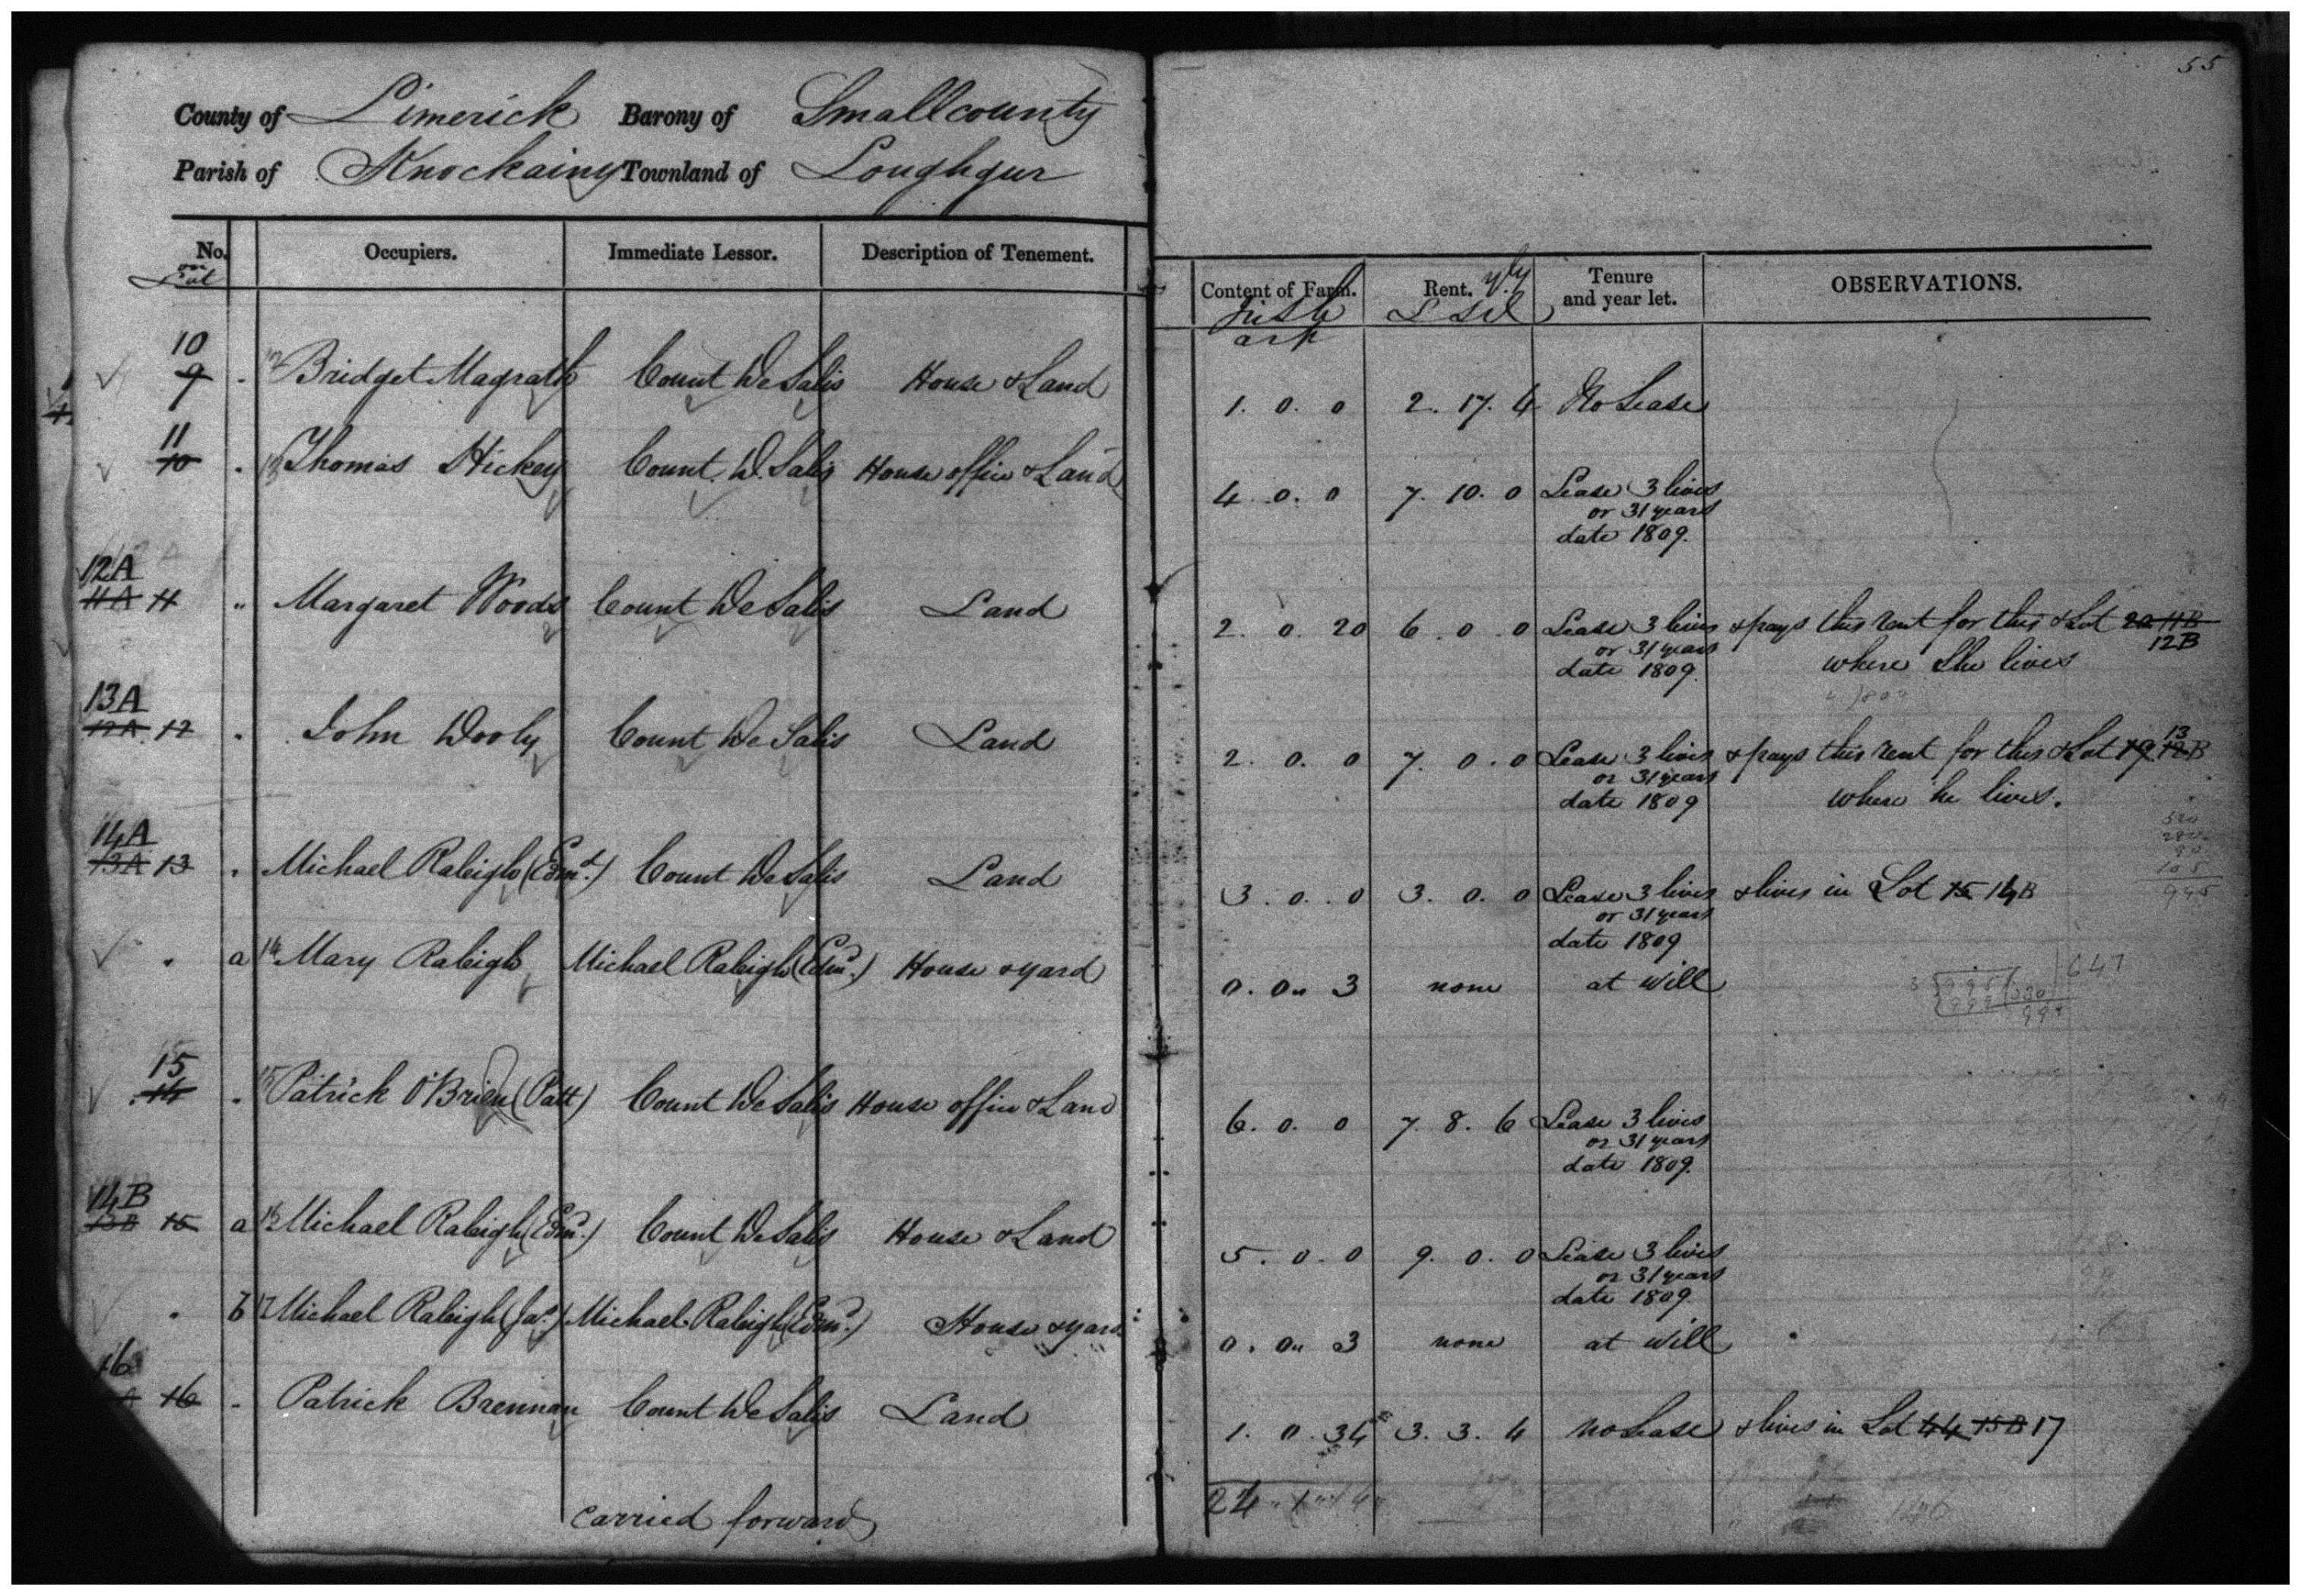 55
County of Limerick Barony of Smallcounty
Parish of Knockainy Townland of Loughgur
No. on Lot Occupiers. Immediate Lessor. Description of Tenement. Content of Farm. Irish a r p Rent. yly £ s d Tenure and year let. OBSERVATIONS.
10
9 " 12 Bridget Magrath Count De Salis House & Land 1. 0. 0 2. 17. 4 No Lease
11
10 " 13 Thomas Hickey Count D. Salis House office & Land 4. 0. 0 7. 10. 0 Lease 3 lives
or 31 years
date 1809.
12A
11A 11 " Margaret Woods Count De Salis Land 2. 0. 20 6. 0. 0 Lease 3 lives & pays this rent for this & Lot 20 11B
or 31 years 12B
date 1809. where She lives
13A
12A 12 " John Dooly Count De Salis Land 2. 0. 0 7. 0. 0 Lease 3 lives & pays this rent for this & Lot 19 12B
13
or 31 years
date 1809 where he lives.
14A
13A 13 " Michael Raleigh (Edmd.) Count De Salis Land 3. 0. 0 3. 0. 0 Lease 3 lives & lives in Lot 15 14B
or 31 years
date 1809
" a 14 Mary Raleigh Michael Raleigh (Edmd.) House & yard 0. 0 " 3 none at will
15
14 " 15 Patrick O'Brien (Patt) Count De Salis House office & Land 6. 0. 0 7. 8. 6 Lease 3 lives
or 31 years
date 1809.
14B
13B 15 a 16 Michael Raleigh (Edmd.) Count De Salis House & Land 5. 0. 0 9. 0. 0 Lease 3 lives
or 31 years
date 1809.
" b 17 Michael Raleigh (Jas.) Michael Raleigh (Edmd.) House & yard 0. 0 " 3 none at will
16
16 " Patrick Brennan Count De Salis Land 1. 0. 34 3. 3. 4 no Lease & lives in Lot 44 15B 17
carried forward 24